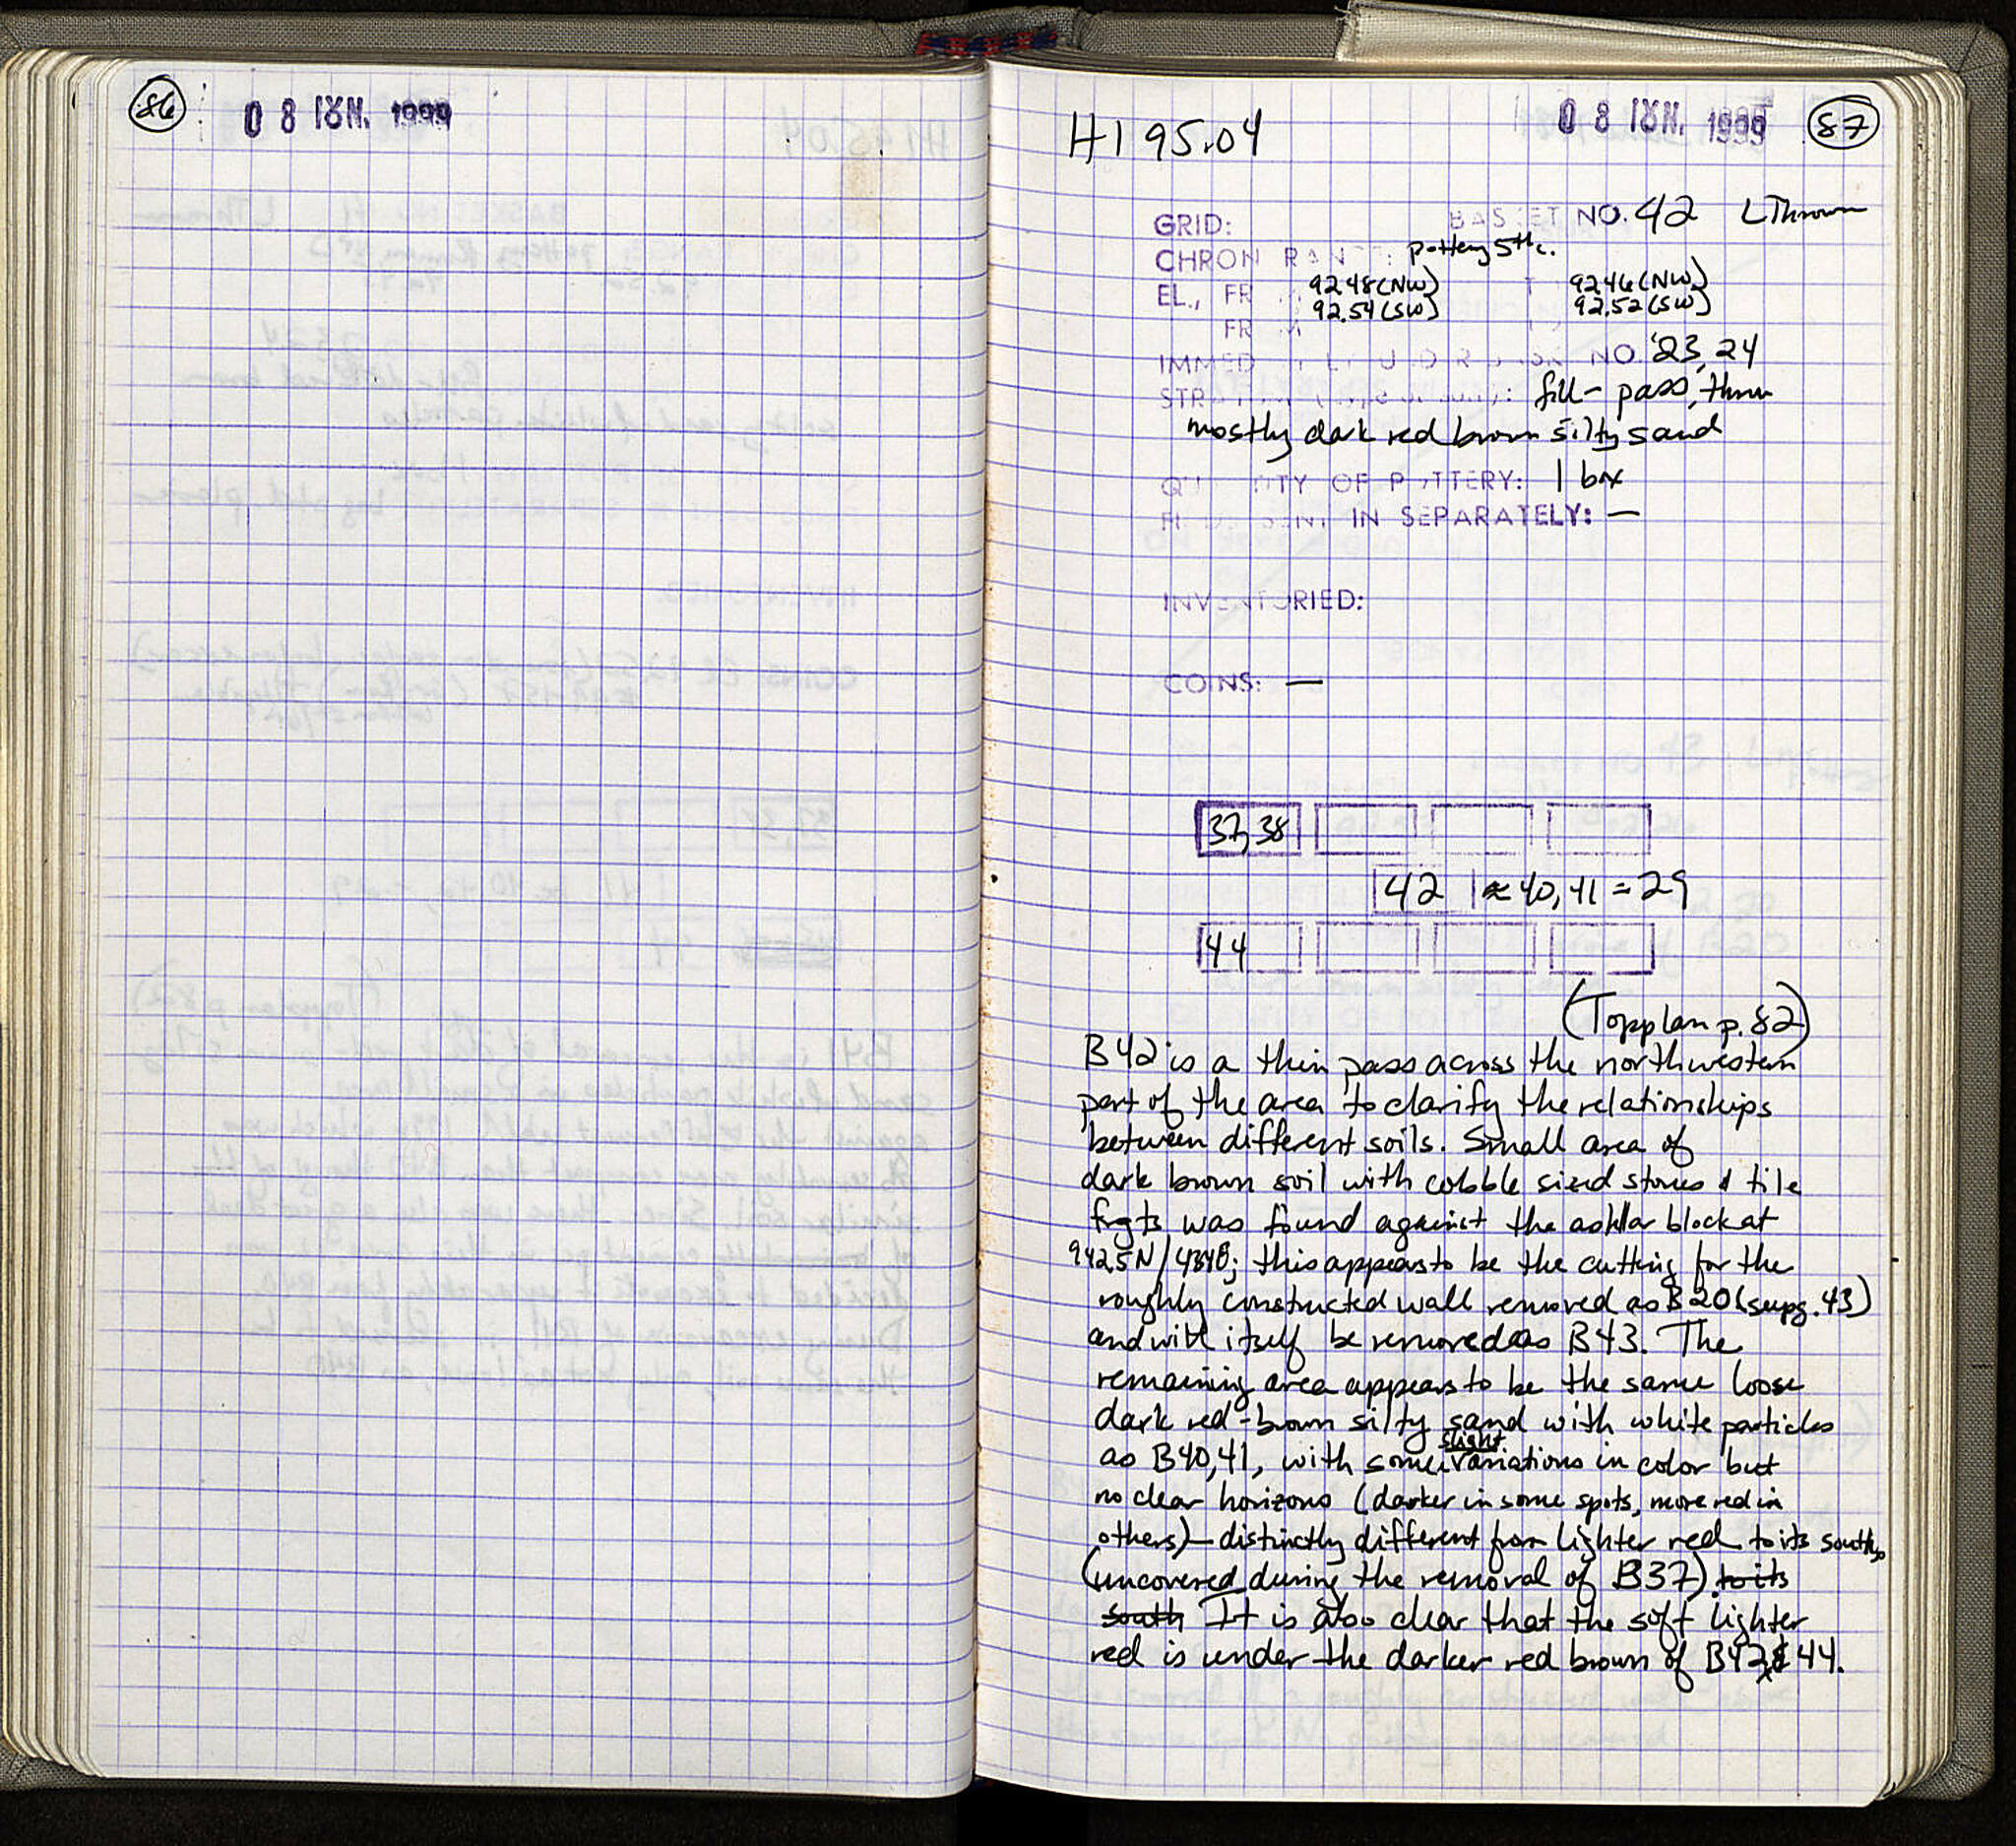 86
08 ΙΟΥΝ. 1999
H195.04
08 ΙΟΥΝ. 1999
87
GRID:
BASKET NO. 42 L Thrown
CHRON RANGE: pottery 5th c.
EL., FROM 92.48(NW) TO 92.46(NW)
92.54(SW) 92.52(SW)
FROM
IMMEDIATELY UNDER BASKET NO. 23, 24
STRATUM: fill - pass, thru
mostly dark red brown silty sand
QUANTITY OF POTTERY: 1 box
FINDS SENT IN SEPARATELY: —
INVENTORIED:
COINS: —
37, 38
42 ≈ 40, 41 = 29
44
(Topplan p. 82)
B42 is a thin pass across the northwestern
part of the area to clarify the relationships
between different soils. Small area of
dark brown soil with cobble sized stones & tile
frgts was found against the ashlar block at
942.5N/484E; this appears to be the cutting for the
roughly constructed wall removed as B20 (see pg. 43)
and will itself be removed as B43. The
remaining area appears to be the same loose
dark red-brown silty sand with white particles
as B40,41, with some slight variations in color but
no clear horizons (darker in some spots, more red in
others) – distinctly different from lighter red to its south
(uncovered during the removal of B37). to its
south It is also clear that the soft lighter
red is under the darker red brown of B42 & 44.